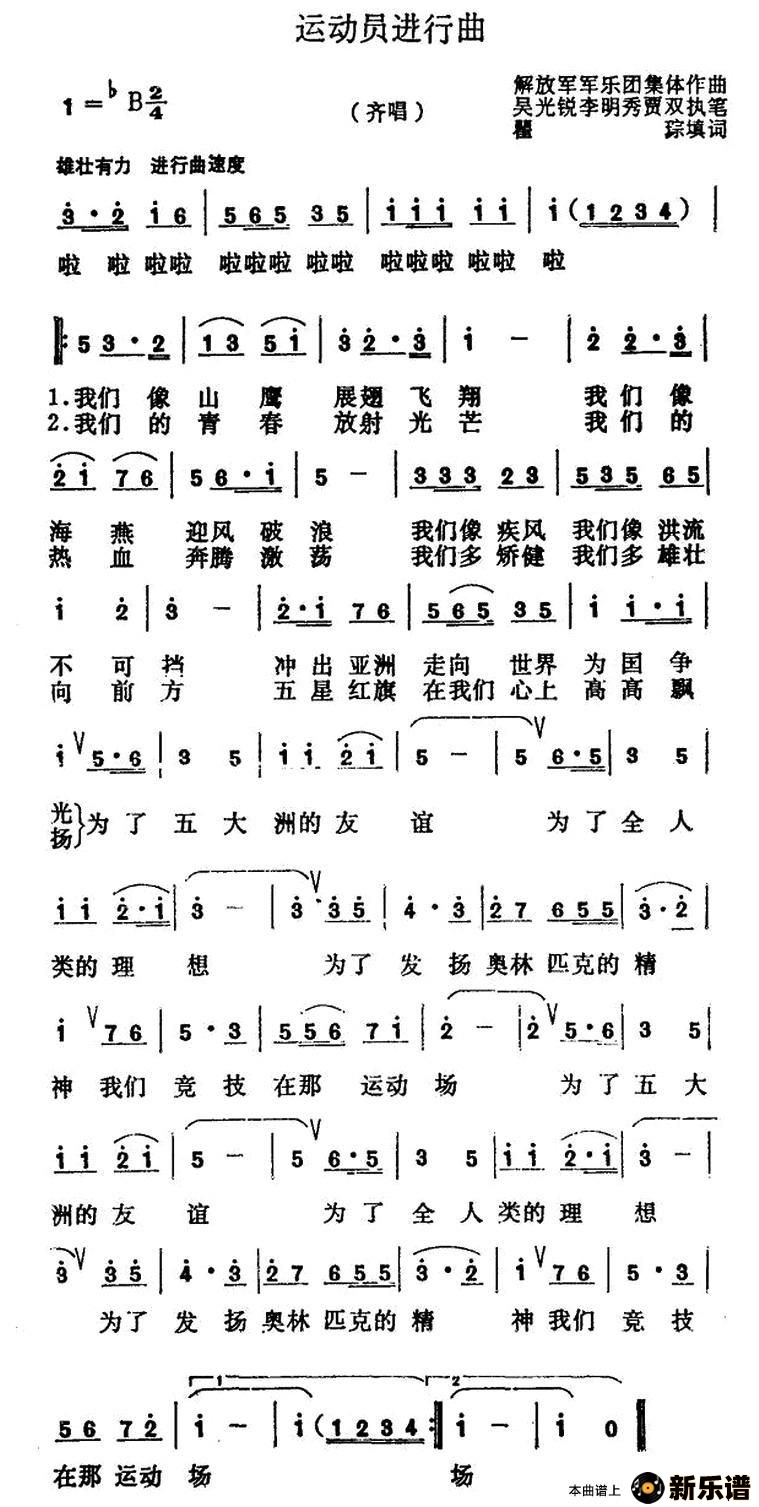 运动员进行曲
1=♭B 2/4
（齐唱）
解放军军乐团集体作曲
吴光锐李明秀贾双执笔
瞿琮填词
雄壮有力 进行曲速度
3·2 16 | 565 35 | 111 11 | 1（1234）|
啦 啦 啦啦 啦啦啦 啦啦 啦啦啦 啦啦 啦
‖: 5 3·2 | 13 51 | 3 2·3 | 1 － | 2 2·3 |
1.我们 像 山 鹰 展翅 飞 翔 我 们 像
2.我们 的 青 春 放射 光 芒 我 们 的
21 76 | 56·1 | 5 － | 333 23 | 535 65 |
海 燕 迎风 破 浪 我们像 疾风 我们像 洪流
热 血 奔腾 激 荡 我们多 矫健 我们多 雄壮
1 2 | 3 － | 2·1 76 | 565 35 | 1 1·1 |
不 可 挡 冲出 亚洲 走向 世界 为 国 争
向 前 方 五星 红旗 在我们 心上 高 高 飘
1 V 5·6 | 3 5 | 11 21 | 5 － | 5 V 6·5 | 3 5 |
光
扬}为 了 五 大 洲的 友 谊 为 了 全 人
11 2·1 | 3 － | 3 V 35 | 4·3 | 27 655 | 3·2 |
类的 理 想 为了 发 扬 奥林 匹克的 精
1 V 76 | 5·3 | 556 71 | 2 － | 2 V 5·6 | 3 5 |
神 我们 竞 技 在那 运动 场 为 了 五 大
11 21 | 5 － | 5 V 6·5 | 3 5 | 11 2·1 | 3 － |
洲的 友 谊 为 了 全 人 类的 理 想
3 V 35 | 4·3 | 27 655 | 3·2 | 1 V 76 | 5·3 |
为了 发 扬 奥林 匹克的 精 神 我们 竞 技
1 2
56 72 | 1 － | 1（1234 :‖ 1 － | 1 0 ‖
在那 运动 场 场
本曲谱上 新乐谱